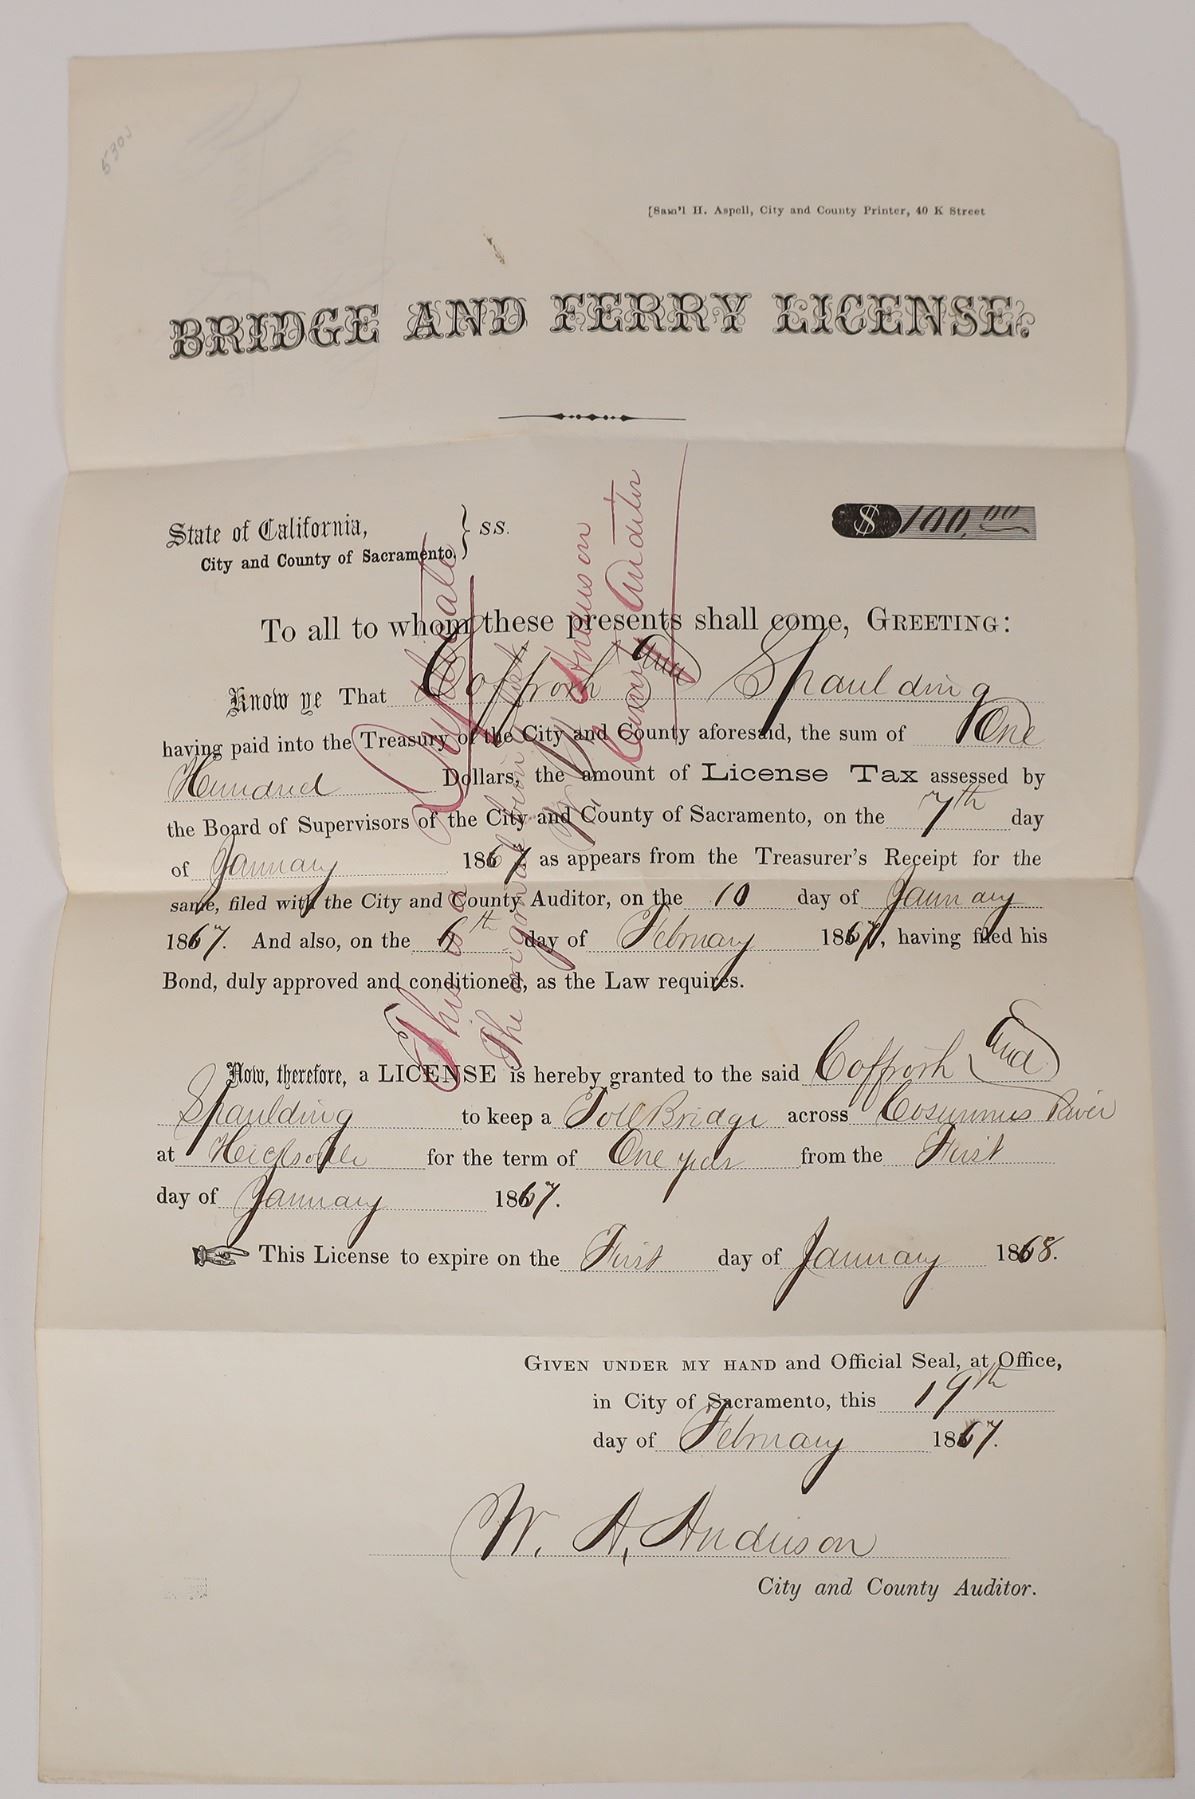 5303
[Sam'l H. Aspell, City and County Printer, 40 K Street
BRIDGE AND FERRY LICENSE.
State of California, } SS.
City and County of Sacramento,
$ 100.00
To all to whom these presents shall come, GREETING:
Know ye That Coffroth and Spaulding
having paid into the Treasury of the City and County aforesaid, the sum of One
Hundred Dollars, the amount of License Tax assessed by
the Board of Supervisors of the City and County of Sacramento, on the 7th day
of January 1867 as appears from the Treasurer's Receipt for the
same, filed with the City and County Auditor, on the 10 day of January
1867. And also, on the 6th day of February 1867, having filed his
Bond, duly approved and conditioned, as the Law requires.
Now, therefore, a LICENSE is hereby granted to the said Coffroth and
Spaulding to keep a Toll Bridge across Cosumnes River
at for the term of One year from the First
day of January 1867.
This License to expire on the First day of January 1868.
GIVEN UNDER MY HAND and Official Seal, at Office,
in City of Sacramento, this 19th
day of February 1867.
W. A. Anderson
City and County Auditor.
This is a Duplicate
The original being lost
W. A. Anderson
County Auditor